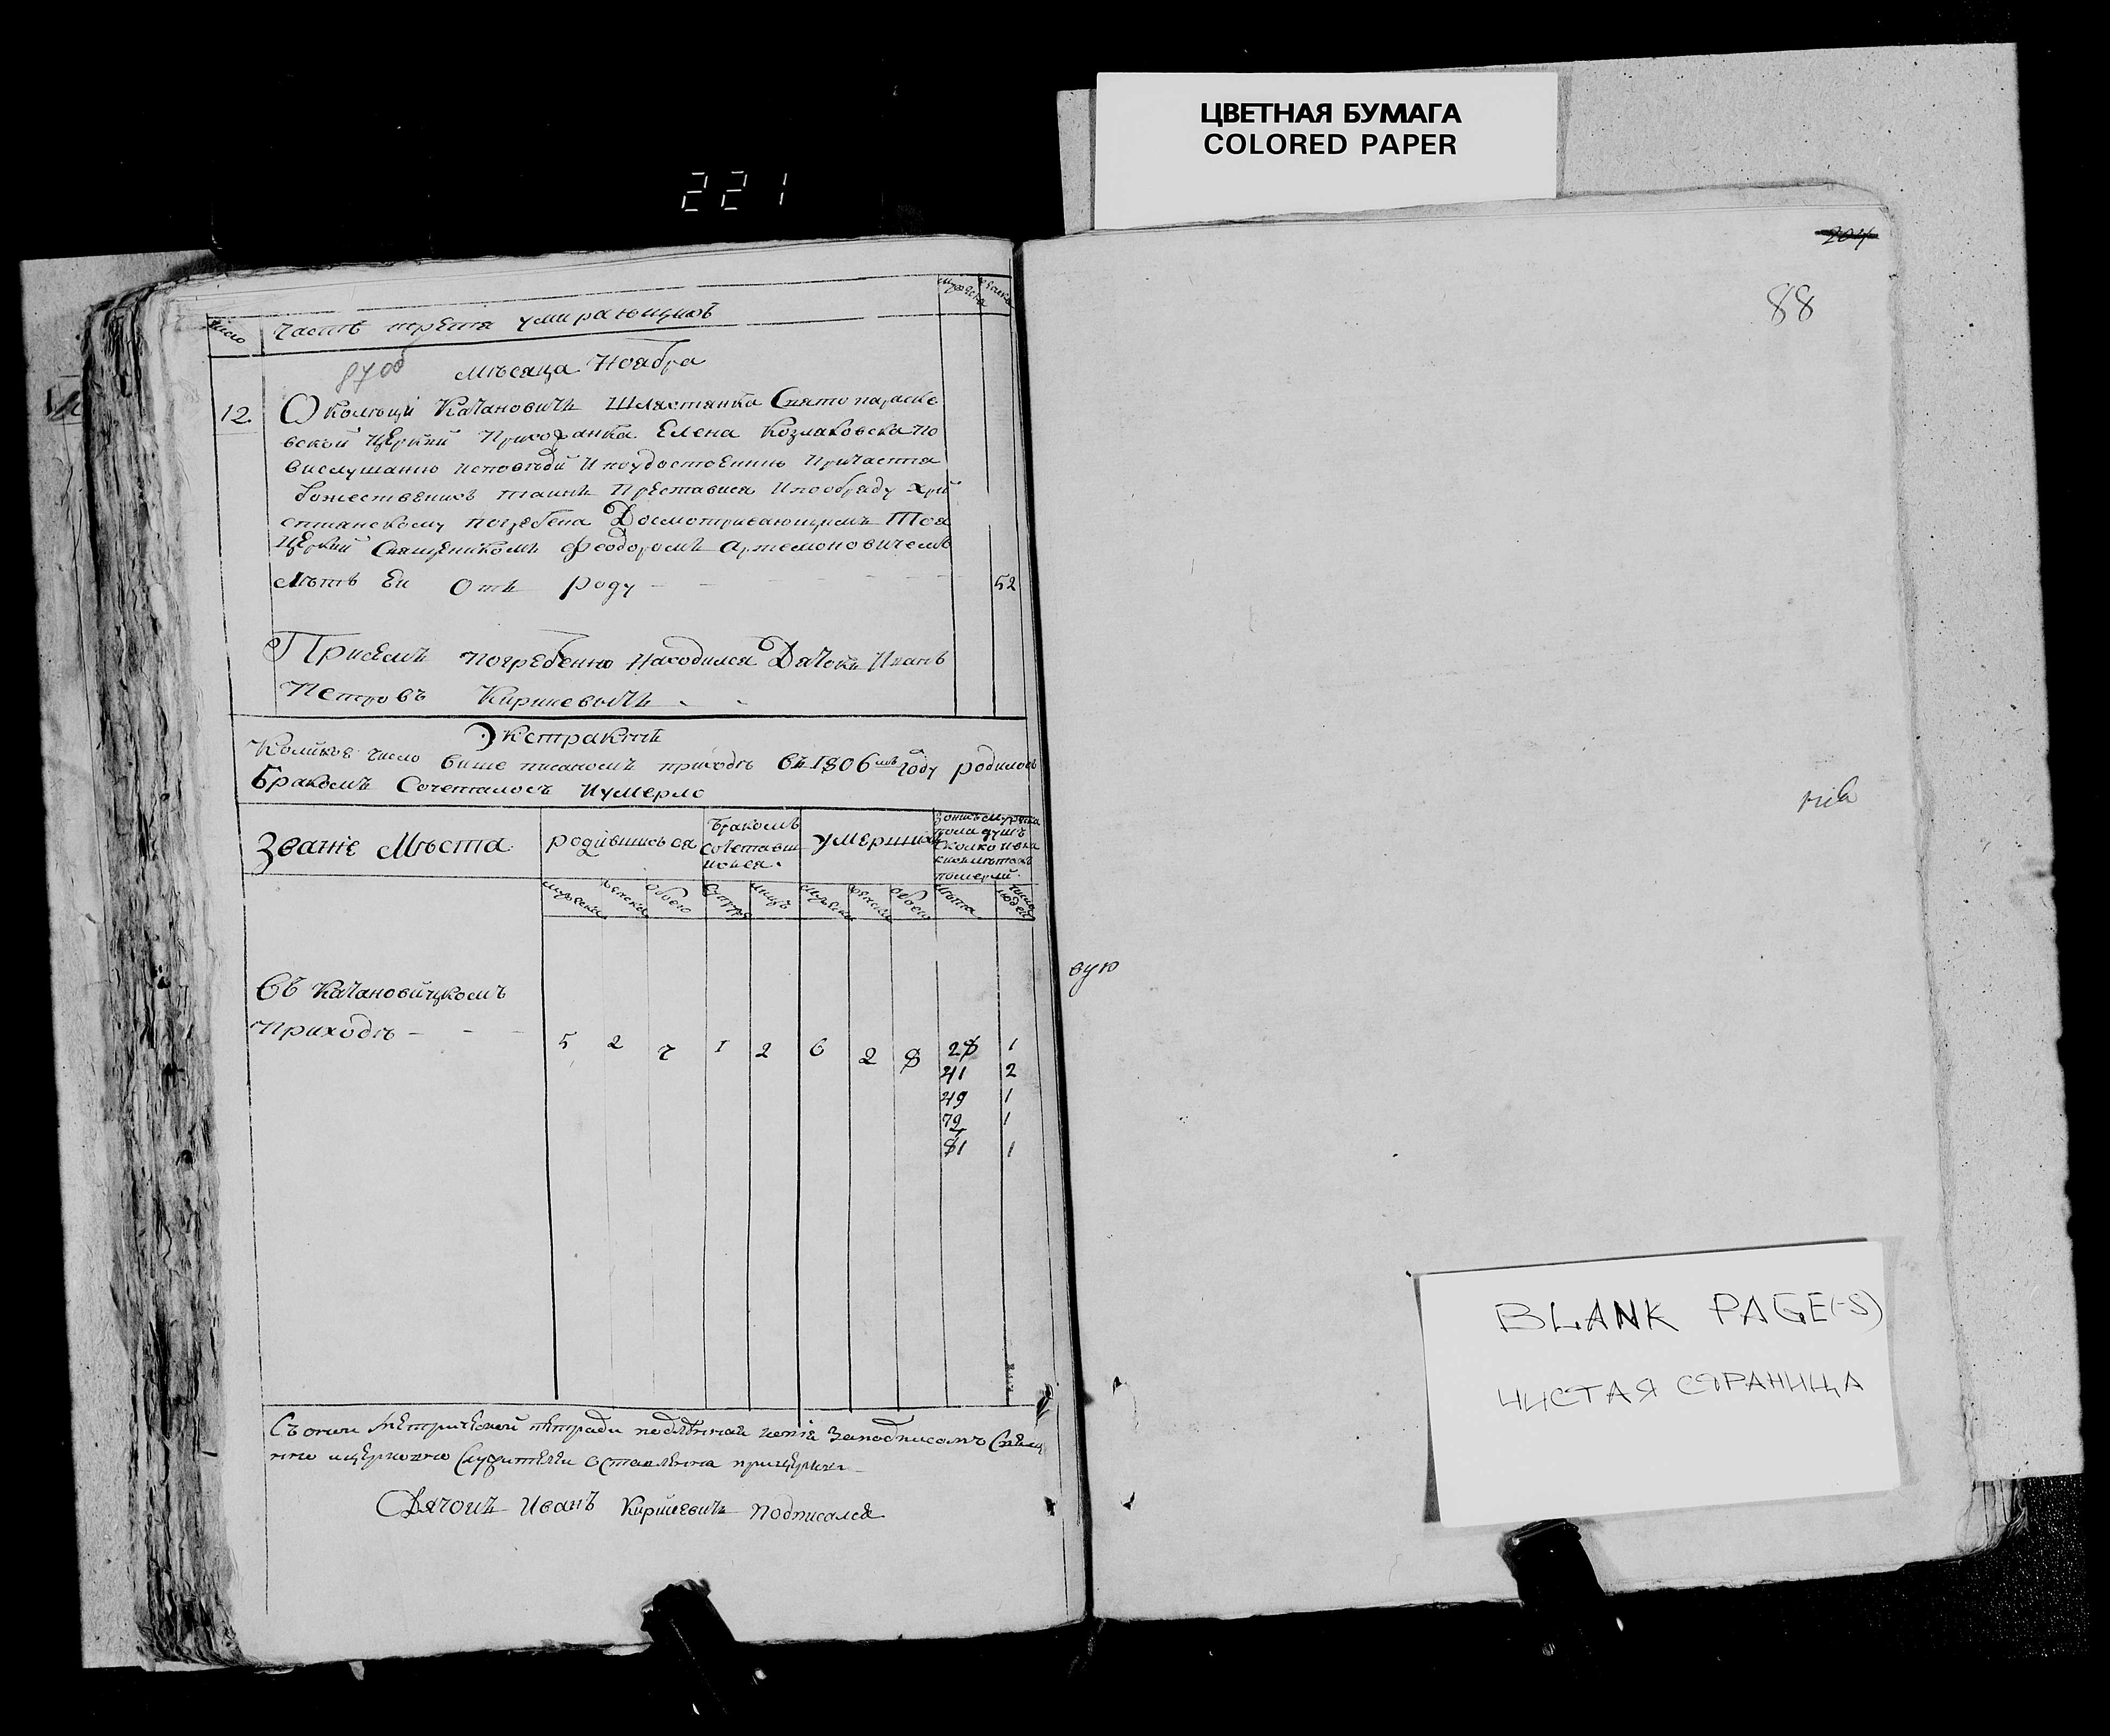 ЦВЕТНАЯ БУМАГА
COLORED PAPER
221
Число
Часть третя умирающихъ
мужеска
женска
Мѣсяца Ноября
12. Околыци Качановичъ Шляхтянка Святопараске
вской Церкви Прихожанка Елена Козляковска По
вислушанию исповѣди И поудостоению Причастия
божественихъ таинъ Преставися И пообряду хрй
стиянскому погребена Досмотривающимъ Тоя
Церкви Священикомъ Феодоромъ Артемоновичемъ
Лѣтъ Еи Отъ роду - - - 52
Присемъ погребению Находился Дячокъ Иванъ
Петровъ Кирикевичъ
Экстрактъ
Коликое число више писаномъ приходѣ въ 1806мъ году родилось
Бракомъ Сочеталось И умерло
Звание Мѣста
родившихься
Бракомъ
сочетавши
ихься.
умершихъ
пола душъ
померли.
мужеска женска обоего лицъ мужеска женска обоего лѣта число людей
Въ Качановйчскомъ
Приходѣ - - -
5 2 7 1 2 6 2 8 28 1
41 2
49 1
72 1
81 1
Съ оной Метрической тетради подлѣнная копія Заподписомъ Свящ
нно ицерковно Служители оставленна прицеркви
Дячокъ Иванъ Кирикевичъ Подписался
204
88
вую
BLANK PAGE(-S)
ЧИСТАЯ СТРАНИЦА